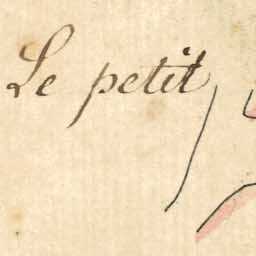 Le petit